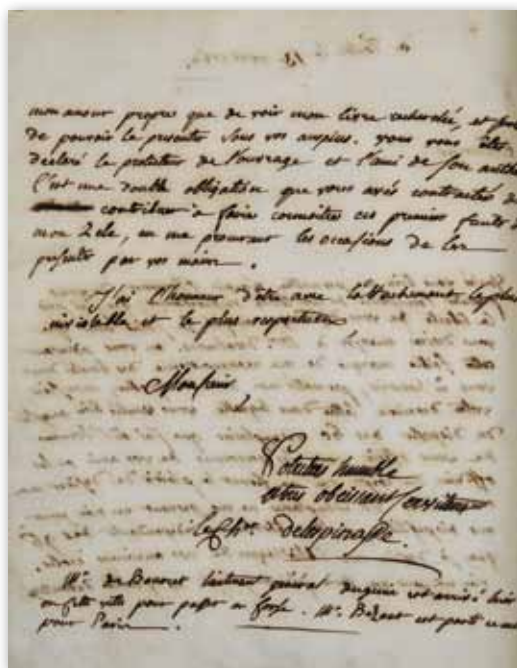 mon amour propre que de voir mon livre recherché, et
de pouvoir le presenter sous vos auspices. vous vous êtes
declaré le protecteur de l'ouvrage et l'ami de son
C'est une double obligation que vous avés contractée
contribuer à faire connoitre ces premiers fruits
mon Zele, en me procurant les occasions de les
par vos mains.
J'ai l'honneur d'être avec l'attachement le plus
inviolable et le plus respectueux
Monsieur
Votre tres humble
et tres obeissant serviteur
le ch.er delespinasse.
Mr. de lieutenant général du genie est arrivé hier
en cette ville pour passer en Corse. Mr. est parti
pour Paris.